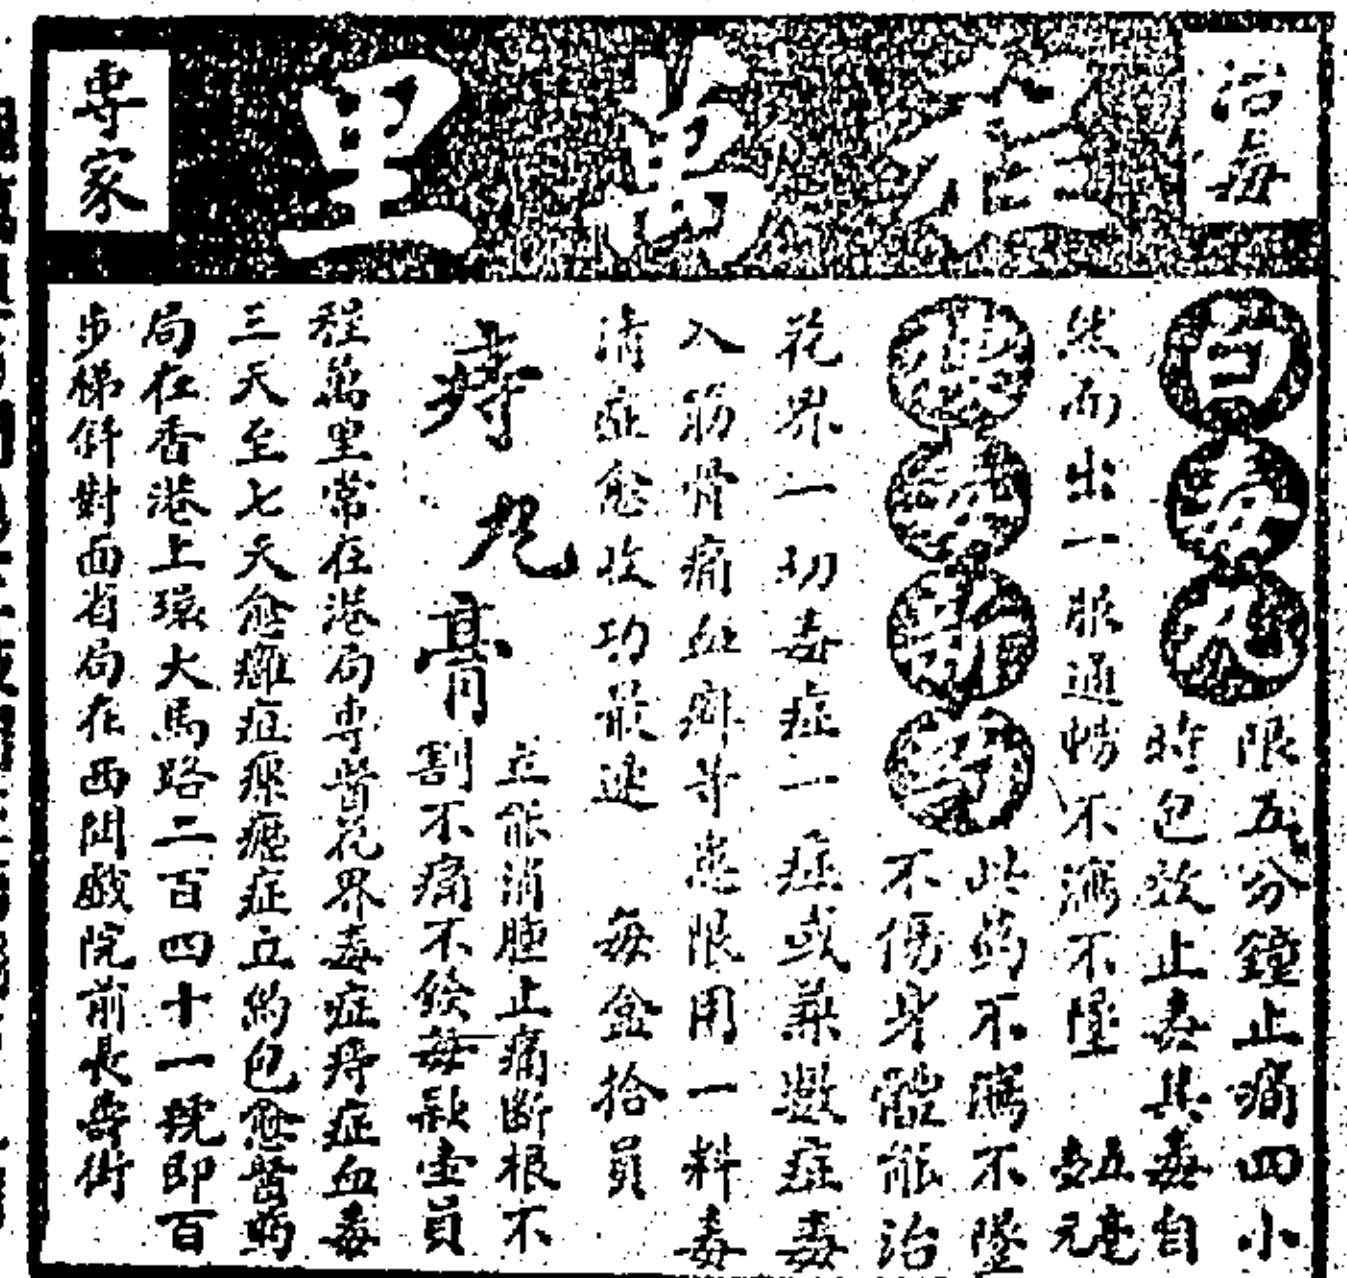 治毒
程萬里
專家
白濁丸
限五分鐘止痛四小
時包效止毒其毒自
然而出一服通暢不瀉不墜
壹元五毫
此药不瀉不墜
不傷身體能治
花界一切毒症一症或兼數症毒
入筋骨痛血癖等患限用一料毒
清症愈收功最速 每盒拾員
痔丸膏
立能消腫止痛斷根不
割不痛不發每欵壹員
程萬里常在港局專醫花界毒症痔症血毒
三天至七天愈癰疽瘰癧症立約包愈醫药
局在香港上環大馬路二百四十一號即百
步梯斜對面省局在西関戲院前長壽街